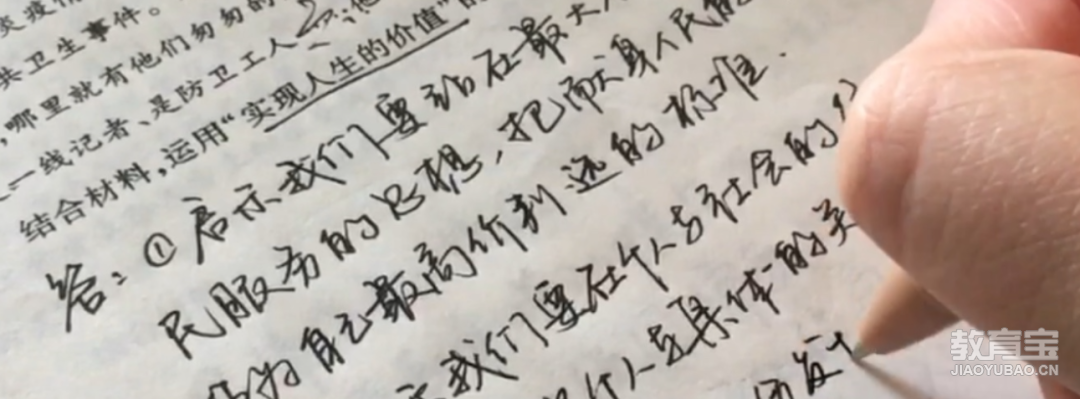 炎疫情
共卫生事件。
,哪里就有他们匆匆的
、一线记者、是防卫工人
结合材料,运用“实现人生的价值”的
答:①启示我们要站在最大人
民服务的思想,把献身人民的
为自己最高价 的标准.
我们要在个人与社会的
个人与集体的关
教育宝
JIAOYUBAO.CN